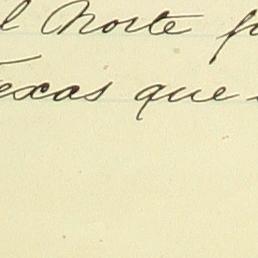 l Norte fu
Texas que